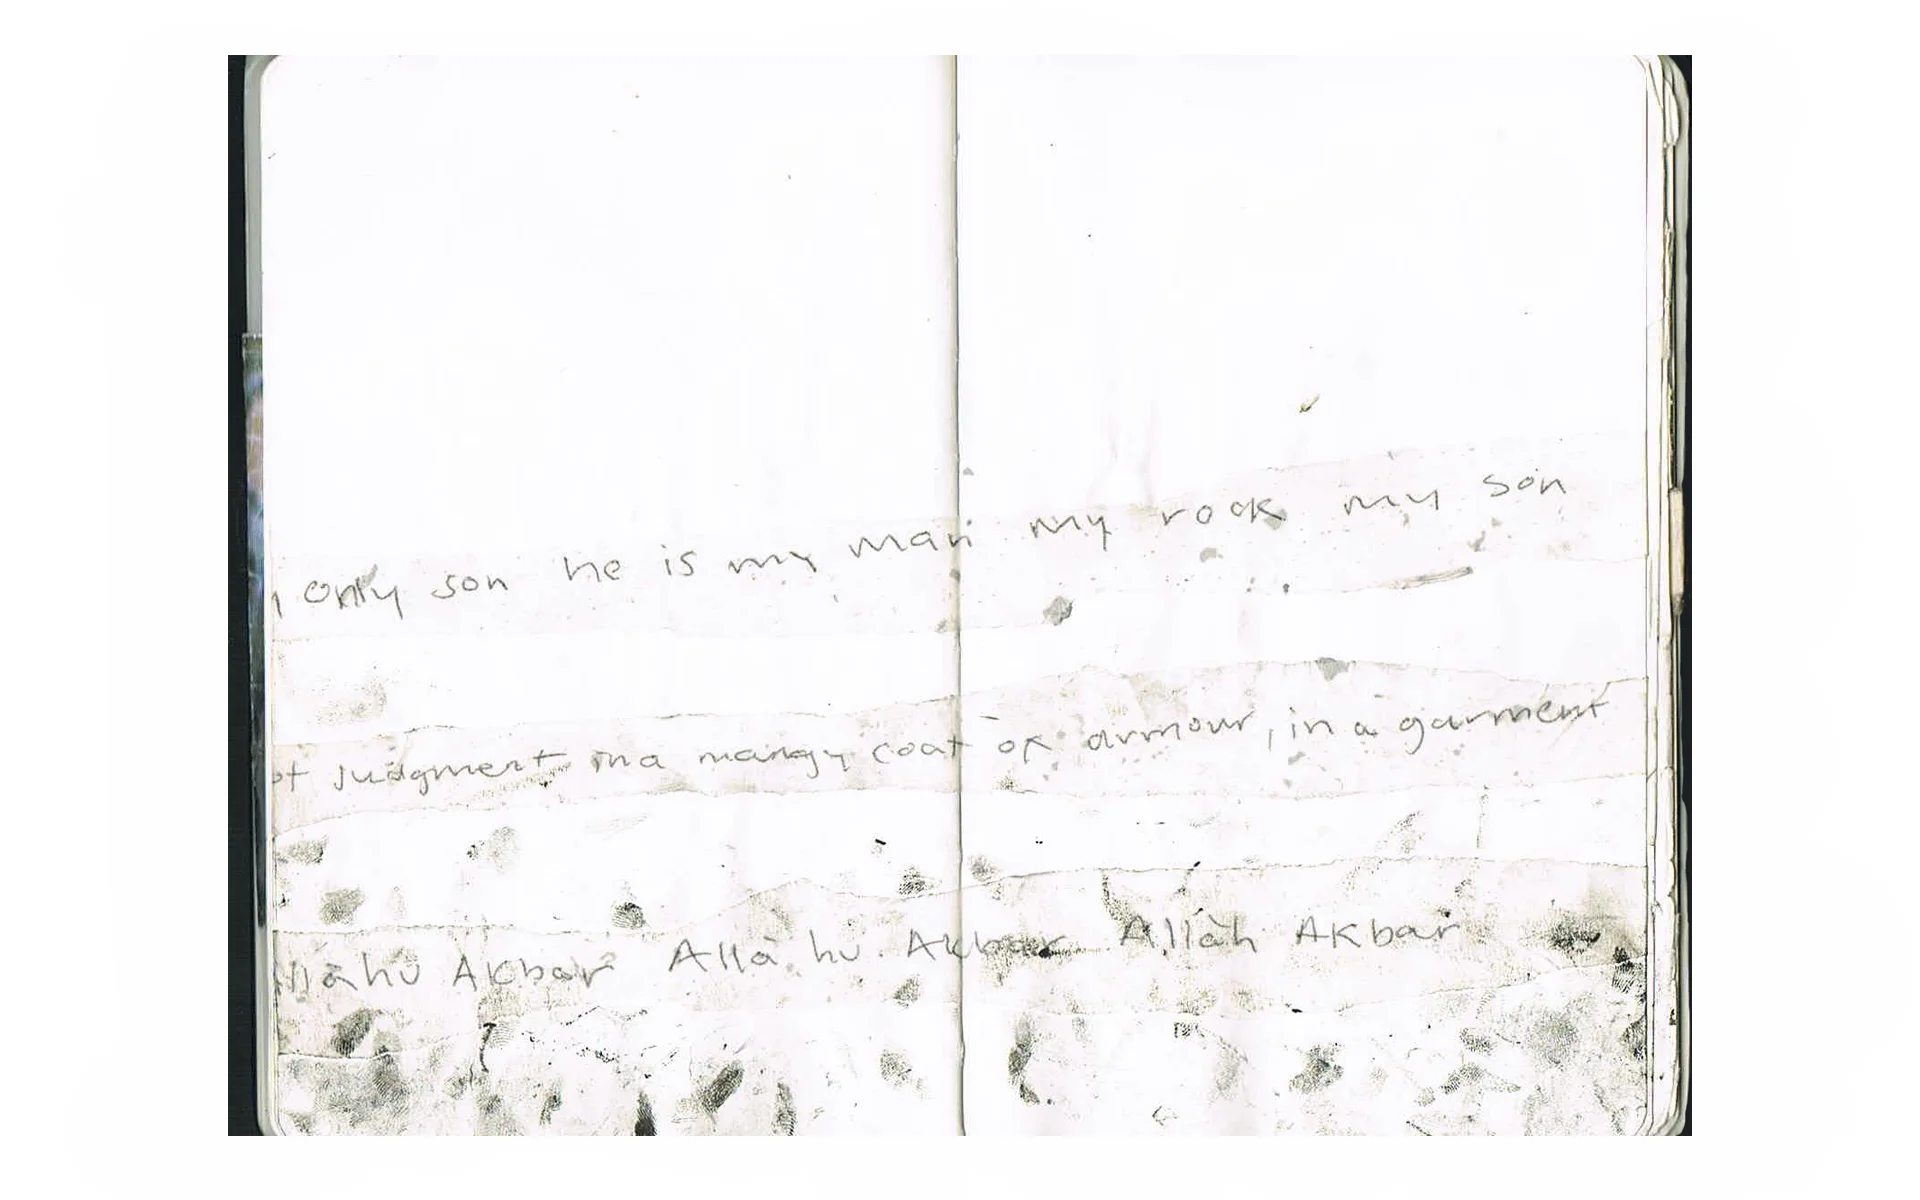 only son he is my man my rock my son
of judgment in a mangy coat of armour, in a garment
llàhu Akbar Allà hu Akbar Allàh AKbar